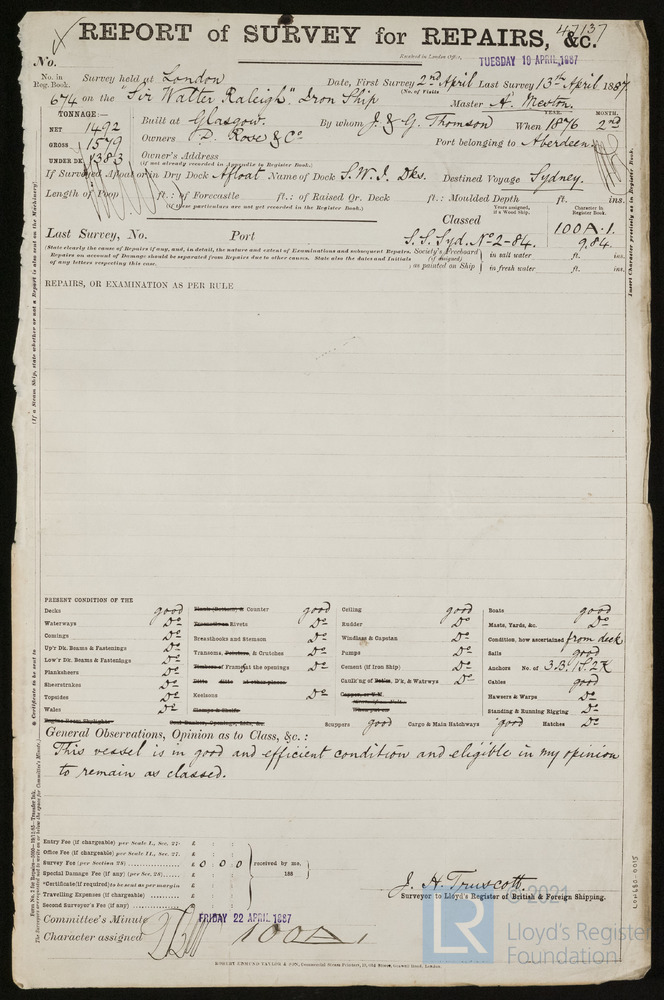 REPORT of SURVEY for REPAIRS, &c. 47137
Received in London Office,
TUESDAY 19 APRIL 1887
No.
No. in Reg. Book. Survey held at London Date, First Survey 2nd April Last Survey 13th April 1887
(No. of Visits
674 on the "Sir Walter Raleigh" Iron Ship Master A. Meston.
TONNAGE:— YEAR. MONTH.
NET 1492 Built at Glasgow. By whom J. & G. Thomson When 1876 2nd
GROSS 1579 Owners D. Rose & Co Port belonging to Aberdeen
UNDER DK 1383 Owner's Address
(if not already recorded in Appendix to Register Book.)
If Surveyed Afloat or in Dry Dock Afloat Name of Dock S.W.I. Dks. Destined Voyage Sydney.
Length of Poop ft.: of Forecastle ft.: of Raised Qr. Deck ft.: Moulded Depth ft. ins.
(If these particulars are not yet recorded in the Register Book.)
Years assigned, if a Wood Ship. Character in Register Book.
Classed 100A.1.
Last Survey, No. Port S.S. Syd. No 2-84. 9.84.
(State clearly the cause of Repairs if any, and, in detail, the nature and extent of Examinations and subsequent Repairs.
Repairs on account of Damage should be separated from Repairs due to other causes. State also the dates and Initials
of any letters respecting this case.
Society's Freeboard (if assigned) as painted on Ship in salt water ft. ins.
in fresh water ft. ins.
REPAIRS, OR EXAMINATION AS PER RULE
Insert Character precisely as in Register Book.
(If a Steam Ship, state whether or not a Report is also sent on the Machinery)
PRESENT CONDITION OF THE
Decks good
Waterways Do
Comings Do
Up'r Dk. Beams & Fastenings Do
Low'r Dk. Beams & Fastenings Do
Planksheers Do
Sheerstrakes Do
Topsides Do
Wales Do
Engine Room Skylights
Planks (Bottom) & Counter good
Rivets Do
Breasthooks and Stemson Do
Transoms, Pointers, & Crutches Do
Timbers of Frame at the openings Do
Ditto ditto at other places
Keelsons Do
Clamps & Shelfs
Ceiling good
Rudder Do
Windlass & Capstan Do
Pumps Do
Cement (if Iron Ship) Do
Caulk'ng of Bottm, D'k, & Watrwys Do
Scuppers good Cargo & Main Hatchways good Hatches Do
Boats good
Masts, Yards, &c. Do
Condition, how ascertained from deck
Sails good
Anchors No. of 3.B. 1S. 2K
Cables good
Hawsers & Warps Do
Standing & Running Rigging Do
General Observations, Opinion as to Class, &c.:
This vessel is in good and efficient condition and eligible in my opinion
to remain as classed.
Entry Fee (if chargeable) per Scale I., Sec. 27. £ : :
Office Fee (if chargeable) per Scale II., Sec. 27. £ : :
Survey Fee (per Section 28) £ 0 : 0 : 0 received by me,
Special Damage Fee (if any) (per Sec. 28) £ : : 188
*Certificate (if required) to be sent as per margin
Travelling Expenses (if chargeable) £ : :
Second Surveyor's Fee (if any) £ : :
J. H. Truscott
Surveyor to Lloyd's Register of British & Foreign Shipping.
Committee's Minute FRIDAY 22 APRIL 1887
Character assigned 100A1
ROBERT EDMUND TAYLOR & SON,
LON690-0015
© 2021
LR
Lloyd's Register
Foundation